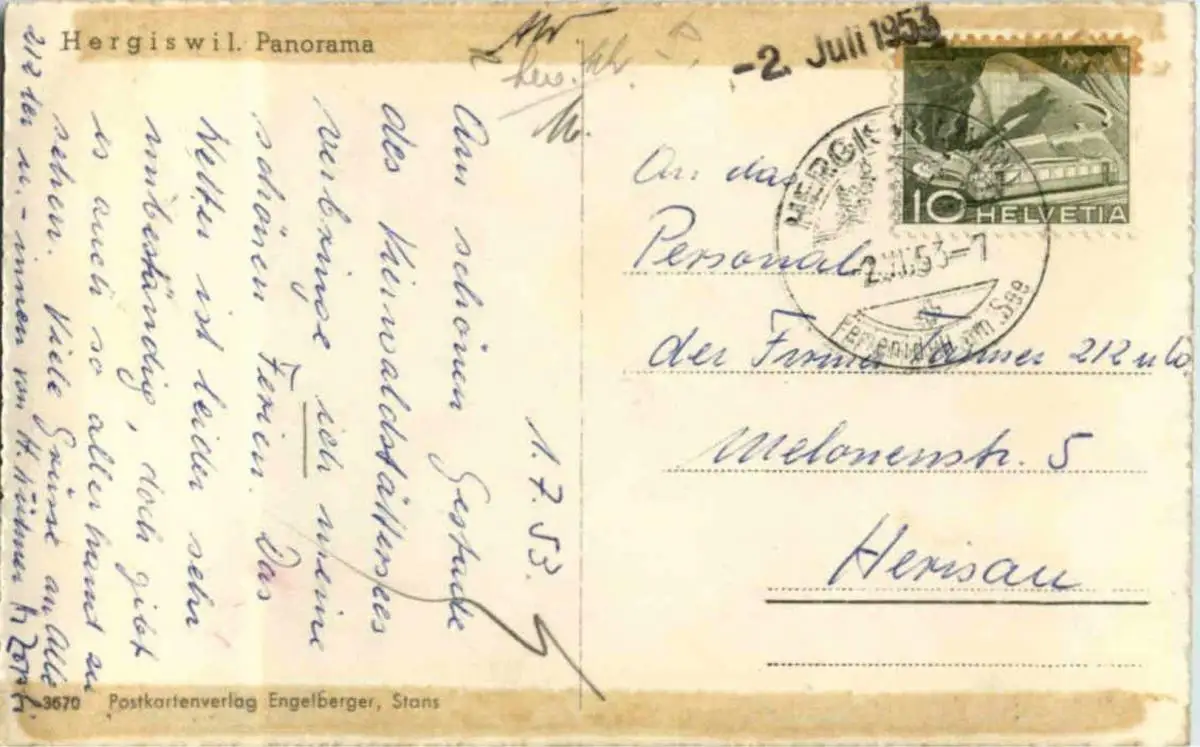 Hergiswil. Panorama
1. 7. 53.
Am schönen Gestade
des Vierwaldstättersees
verbringe ich meine
schönen Ferien. Das
Wetter ist leider sehr
unbeständig, doch gibt
es auch so allerhand zu
sehen. Viele Grüsse an Alle
212 ter u. - innen von H.
-2. Juli 1953
10 HELVETIA
HERGIS
2.VII.53-7
Ferienidyll am See
An das
Personal
der Firma 212
Melonenstr. 5
Herisau
3670 Postkartenverlag Engelberger, Stans